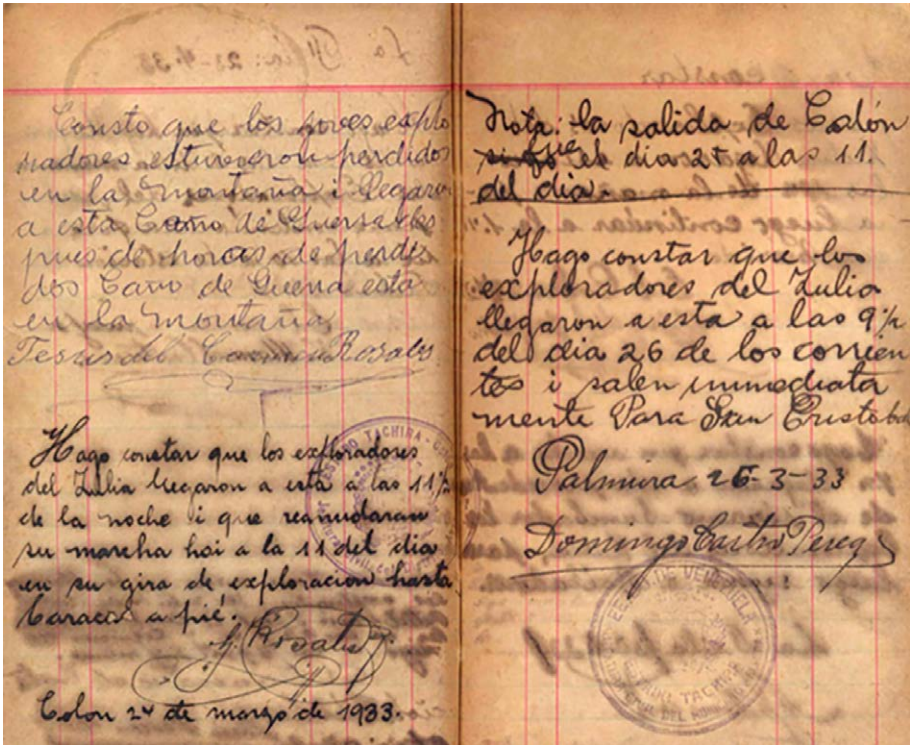 Consto que los joves explo
radores estuvieron perdidos
en la montaña i llegaron
a esta Caño de Guerra des
pues de horas de perdi
dos Caño de Guerra esta
en la montaña
Rosales
Hago constar que los exploradores
del Zulia llegaron a esta a las 11½
de la noche i que reanudaran
su marcha hoi a la 11 del dia
en su gira de exploracion hasta
Caracas a pié.
Colon 24 de marzo de 1933.
TACHIRA
Nota: la salida de Colón
fue el dia 25 a las 11.
del dia.
Hago constar que los
exploradores del Zulia
llegaron a esta a las 9½
del dia 26 de los corrien
tes i salen inmediata
mente Para San Cristobal
Palmira 26-3-33
Domingo Castro Perez
DE VENEZUELA
TACHIRA